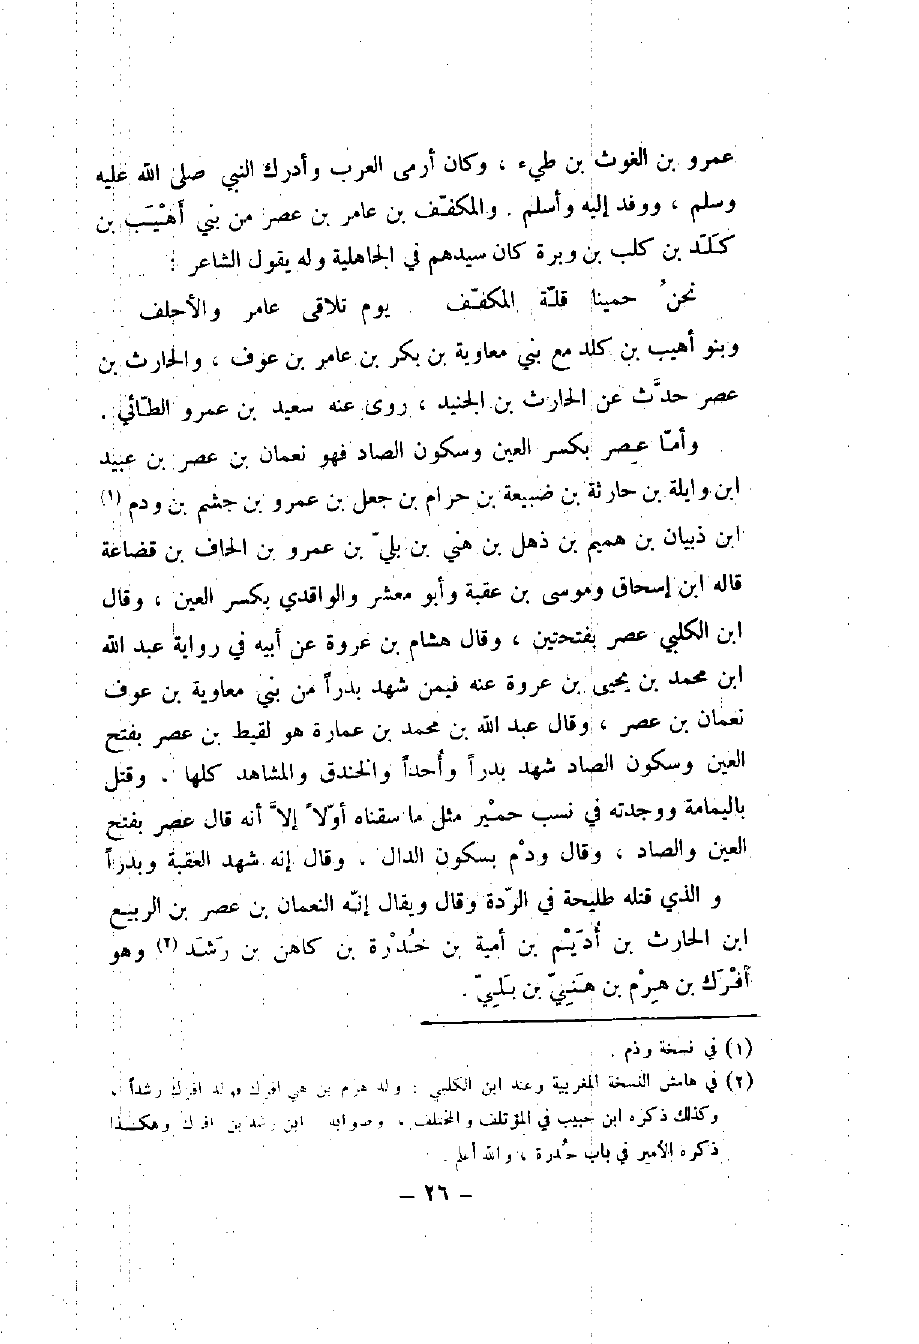 عمرو بن الغوث بن طيء ، وكان أرمى العرب وأدرك النبي صلى الله عليه
وسلم ، ووفد إليه وأسلم . والمكفّف بن عامر بن عصر من بني أَهْيَب بن
كَلَد بن كلب بن وبرة كان سيدهم في الجاهلية وله يقول الشاعر :
نحنُ حمينا قلّة المكفّف يوم تلاقى عامر والأحلف
وبنو أهيب بن كلد مع بني معاوية بن بكر بن عامر بن عوف ، والحارث بن
عصر حدَّث عن الحارث بن الجنيد ، روى عنه سعيد بن عمرو الطّائي .
وأمّا عِصر بكسر العين وسكون الصاد فهو نعمان بن عصر بن عبيد
ابن وايلة بن حارثة بن ضبيعة بن حرام بن جعل بن عمرو بن جشم بن ودم (١)
ابن ذبيان بن هميم بن ذهل بن هني بن بليّ بن عمرو بن الحاف بن قضاعة
قاله ابن إسحاق وموسى بن عقبة وأبو معشر والواقدي بكسر العين ، وقال
ابن الكلبي عصر بفتحتين ، وقال هشام بن عروة عن أبيه في رواية عبد الله
ابن محمد بن يحيى بن عروة عنه فيمن شهد بدراً من بني معاوية بن عوف
نعمان بن عصر ، وقال عبد الله بن محمد بن عمارة هو لقيط بن عصر بفتح
العين وسكون الصاد شهد بدراً وأحداً والخندق والمشاهد كلها . وقتل
باليمامة ووجدته في نسب حمْير مثل ما سقناه أوّلاً إلاَّ أنه قال عصر بفتح
العين والصاد ، وقال ودْم بسكون الدال . وقال إنه شهد العقبة وبدراً
و الذي قتله طليحة في الرّدة وقال ويقال إنّه النعمان بن عصر بن الربيع
ابن الحارث بن أُدَيْم بن أمية بن خُدْرة بن كاهن بن رَشَد (٢) وهو
أفْرَك بن هرْم بن هَنيّ بن بَليّ .
(١) في نسخة وذم .
(٢) في هامش النسخة المغربية وعند ابن الكلبي : ولد هرم بن هي افرك فولد افرك رشداً ،
وكذلك ذكره ابن حبيب في المؤتلف والمختلف ، وصوابه ابن رشد بن افرك وهكذا
ذكره الأمير في باب خُدرة ، والله أعلم .
– ٢٦ –